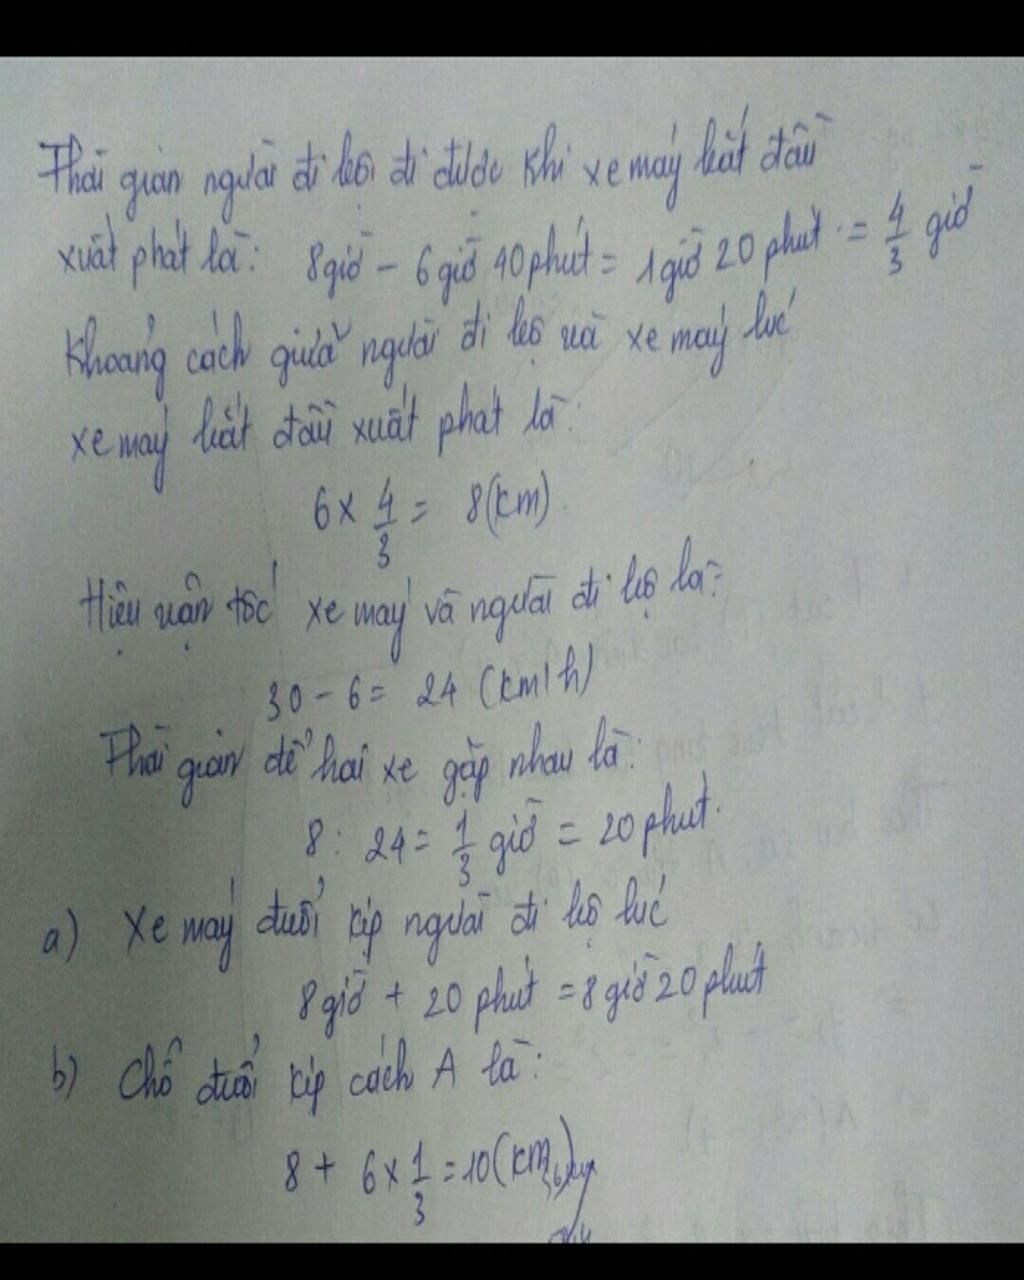 Thời gian người đi bộ đi được khi xe máy bắt đầu
xuất phát là: 8giờ - 6giờ 40phút = 1giờ 20 phút = 4/3 giờ
Khoảng cách giữa người đi bộ và xe máy lúc
xe máy bắt đầu xuất phát là:
6 x 4/3 = 8(km)
Hiệu vận tốc xe máy và người đi bộ là:
30 - 6 = 24 (km/h)
Thời gian để hai xe gặp nhau là:
8 : 24 = 1/3 giờ = 20 phút.
a) Xe máy đuổi kịp người đi bộ lúc
8giờ + 20 phút = 8giờ 20 phút
b) Chỗ đuổi kịp cách A là:
8 + 6 x 1/3 = 10(km)